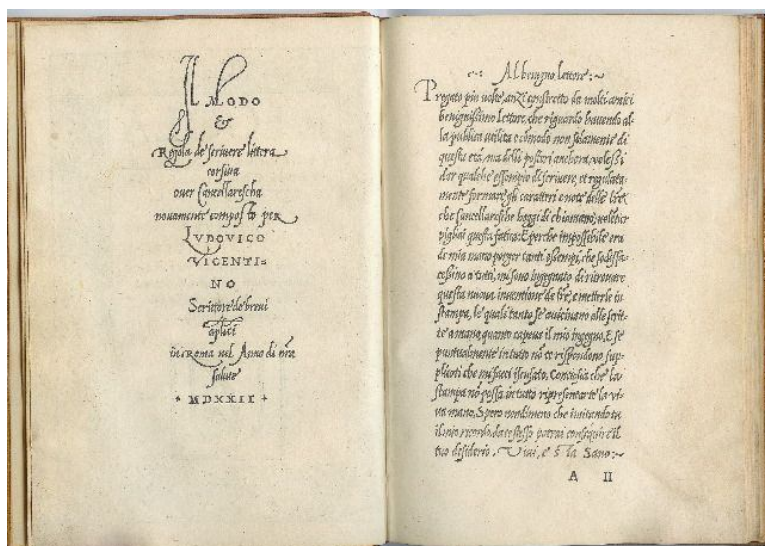 Il
MODO
&
Regola de scrivere littera
corsiva
over Cancellarescha
novamente composto per
LVDOVICO
VICENTI=
NO
Scrittore de brevi
aplici
in Roma nel Anno di nra
salute
+ MDXXII +
Al benigno lettore :~
Pregato piu volte, anzi constretto da molti amici
benignissimo Lettore, che riguardo havendo al-
la publica utilita e cōmodo non solamente di
questa età, ma delli posteri anchora, volessi
dar qualche essempio di scrivere, et regulata-
mente formare gli caratteri e note delle lrē,
che Cancellaresche hoggi di chiamano, volētier
pigliai questa fatica: E perche impossibile era
de mia mano porger tanti essempi, che sodisfa-
cessino a tutti, mi sono ingegnato di ritrovare
questa nuova inventione de lrē, e metterle in
stampa, le quali tanto se avicinano alle scrit-
te a mano, quanto capeva il mio ingegno, E se
puntualmente in tutto nō te rispondono, sup-
plicoti che mi facci iscusato, Conciosia che la
stampa nō possa in tutto ripresentarte la vi-
va mano, Spero nondimeno che imitando tu
il mio ricordo, da te stesso potrai conseguire il
tuo disiderio. Vivi, e Sano :~
A II